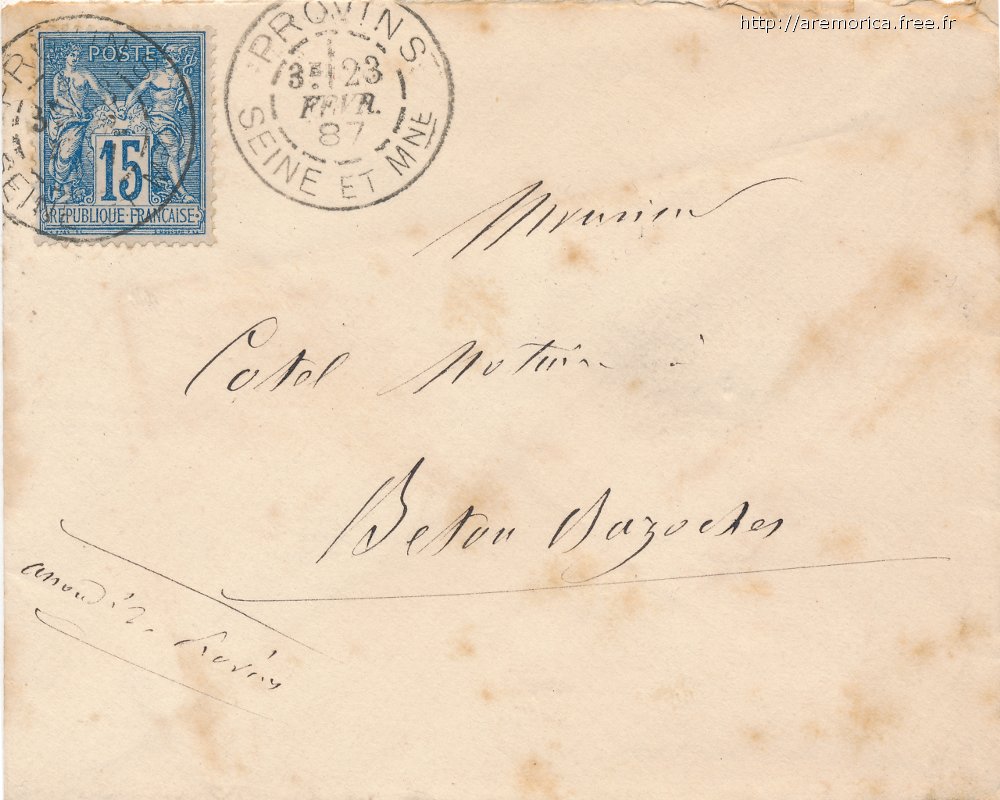 http://aremorica.free.fr
POSTE
15
RÉPUBLIQUE FRANÇAISE
PROVINS
3E 23
FEVR.
87
SEINE ET MNE
Monsieur
Cotel Notaire à
Beton Bazoches
arrond. de Provins